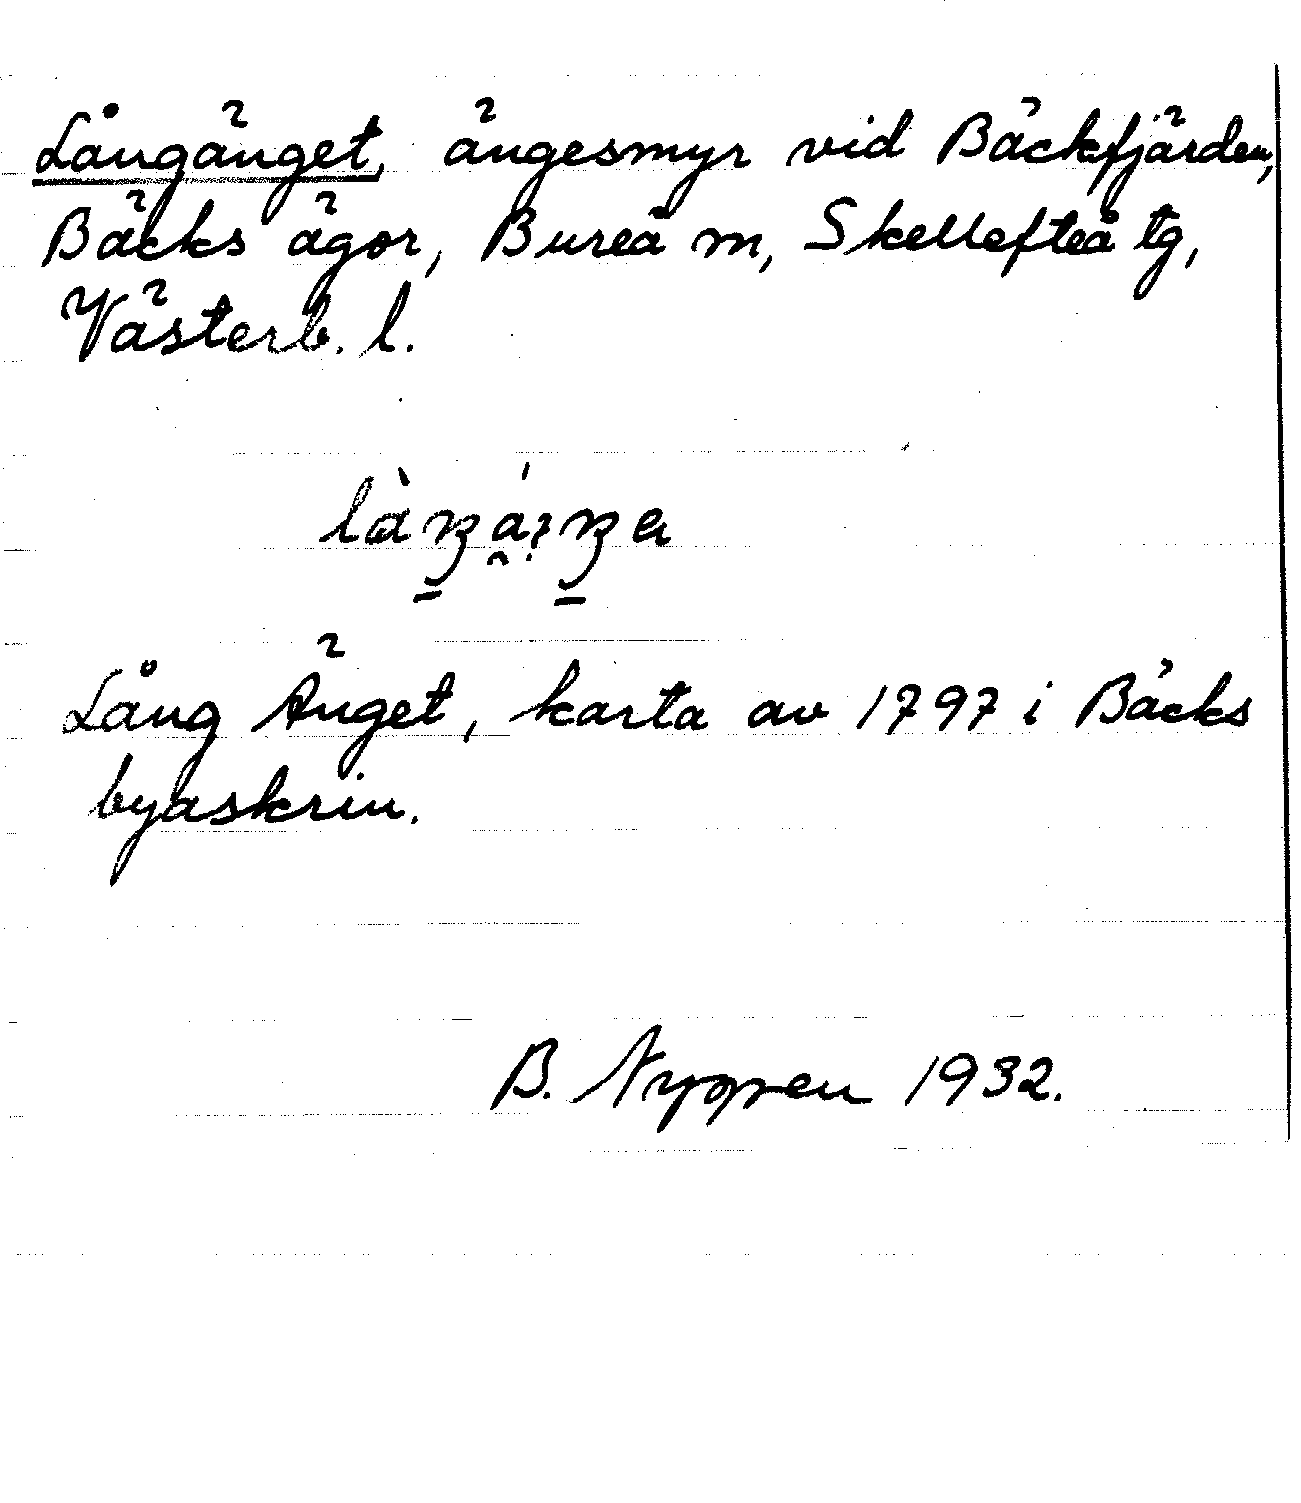 Långänget, ängesmyr vid Bäckfjärden,
Bäcks ägor, Bureå m, Skellefteå tg,
Västerb. l.
Lång Änget, karta av 1797 i Bäcks
byaskrin.
B. Nygren 1932.